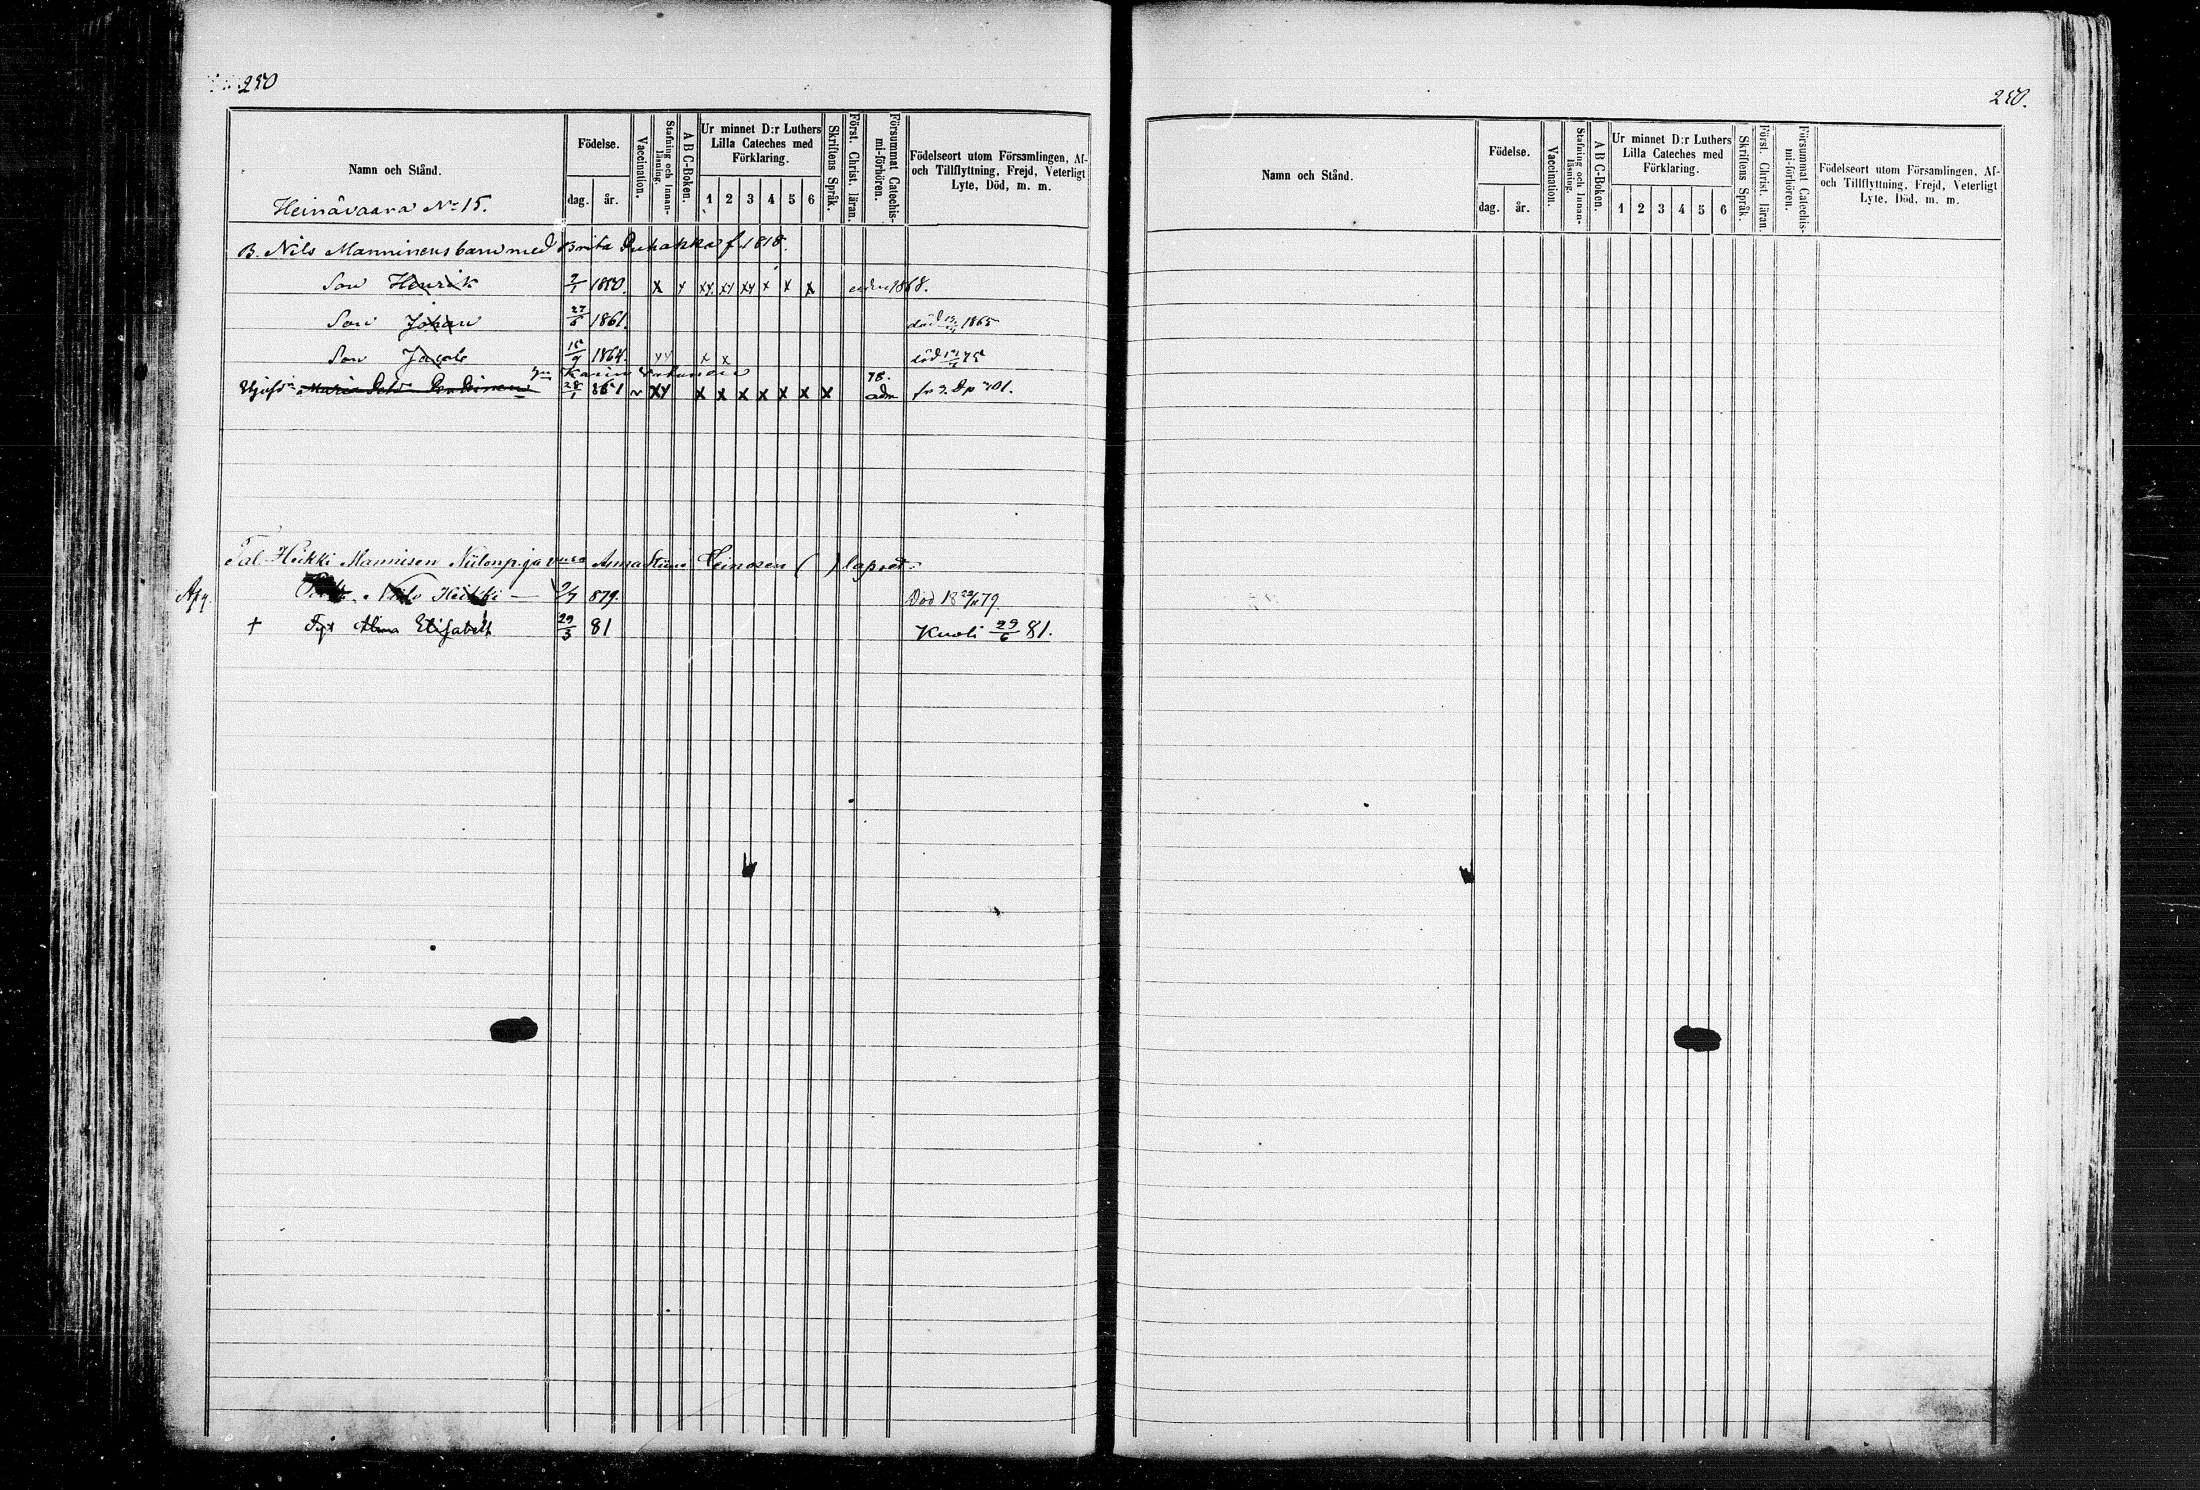 250
Namn och Stånd.
Födelse.
dag.
år.
Vaccination.
Stafning och Innan-läsning.
A B C-Boken.
Ur minnet D:r Luthers
Lilla Cateches med
Förklaring.
1 2 3 4 5 6
Skriftens Språk.
Först. Christ. läran.
Försummat Catechis-mi-förhören.
Födelseort utom Församlingen, Af-
och Tillflyttning, Frejd, Veterligt
Lyte, Död, m. m.
Heinävaara No 15.
B. Nils Manninens barn med Brita f. 1818.
Son Henrik 2/1 1850. x y xy xy xy x x x 1868.
Son Johan 27/6 1861. död 1865
Son Jacob 15/9 1864. xy x x död 75
Karin
28/1 851 v xy x x x x x x x 78. adm fr. p 701.
Tal. Heikki Mannisen Niilonp. ja vaimo Anna Heinosen ( ) lapset:
Niilo Heikki — 2/7 879. Död 18 23/ 79.
† Tyt Alma Elisabeth 29/3 81 Kuoli 29/6 81.
250.
Namn och Stånd.
Födelse.
dag.
år.
Vaccination.
Stafning och Innan-läsning.
A B C-Boken.
Ur minnet D:r Luthers
Lilla Cateches med
Förklaring.
1 2 3 4 5 6
Skriftens Språk.
Först. Christ. läran.
Försummat Catechis-mi-förhören.
Födelseort utom Församlingen, Af-
och Tillflyttning, Frejd, Veterligt
Lyte, Död, m. m.